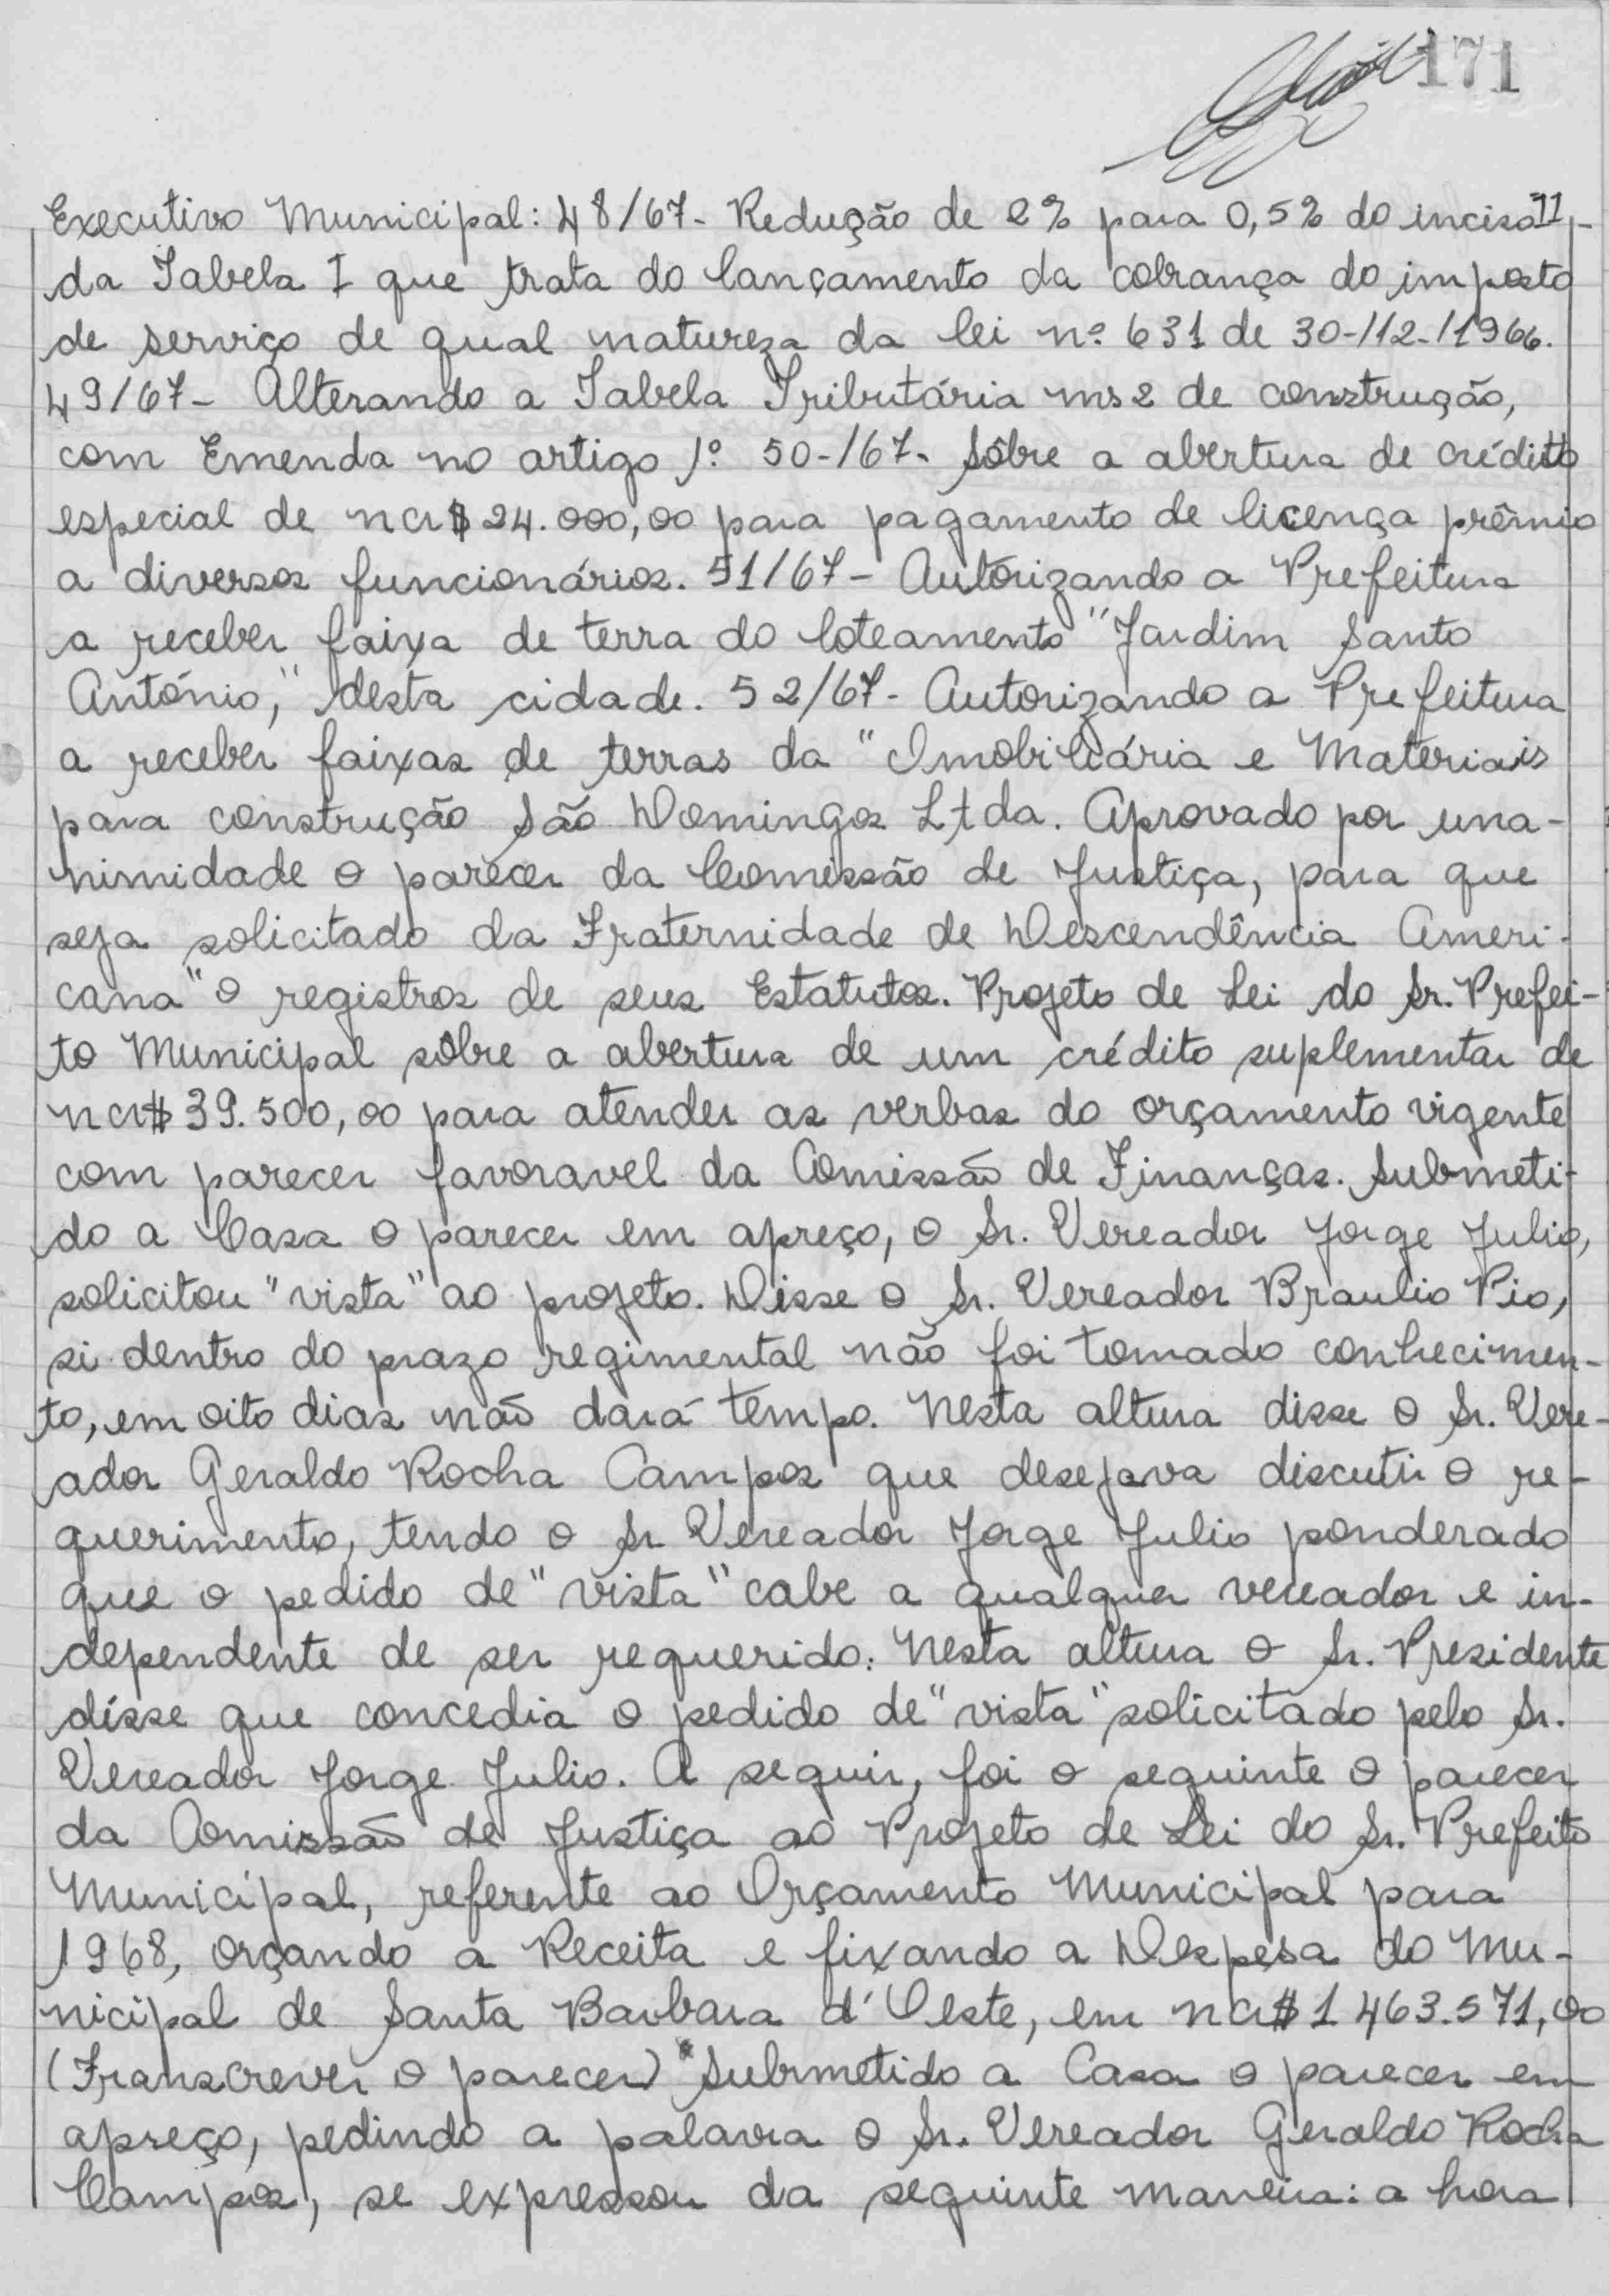 171
Executivo Municipal: 48/67- Redução de 2% para 0,5% do inciso II-
da Tabela I que trata do lançamento da cobrança do imposto
de serviço de qual natureza da lei nº 631 de 30-/12-/1966.
49/67- Alterando a Tabela Tributária ms2 de construção,
com Emenda no artigo 1º. 50-/67- Sôbre a abertura de crédito
especial de ncr$ 24.000,00 para pagamento de licença prêmio
a diversos funcionários. 51/67- Autorizando a Prefeitura
a receber faixa de terra do loteamento "Jardim Santo
António," desta cidade. 52/67- Autorizando a Prefeitura
a receber faixas de terras da "Imobiliária e Materiais
para construção São Domingos Ltda. Aprovado por una-
nimidade o parecer da Comissão de Justiça, para que
seja solicitado da Fraternidade de Descendência Ameri-
cana" o registros de seus Estatutos. Projeto de Lei do Sr. Prefei-
to Municipal sôbre a abertura de um crédito suplementar de
ncr$ 39.500,00 para atender as verbas do orçamento vigente
com parecer favoravel da Comissão de Finanças. Submeti-
do a Casa o parecer em apreço, o Sr. Vereador Jorge Julio,
solicitou "vista" ao projeto. Disse o Sr. Vereador Braulio Pio,
si dentro do prazo regimental não foi tomado conhecimen-
to, em oito dias não dará tempo. Nesta altura disse o Sr. Vere-
ador Geraldo Rocha Campos que desejava discutir o re-
querimento, tendo o Sr Vereador Jorge Julio ponderado
que o pedido de "vista" cabe a qualquer vereador e in-
dependente de ser requerido. Nesta altura o Sr. Presidente
disse que concedia o pedido de "vista" solicitado pelo Sr.
Vereador Jorge Julio. A seguir, foi o seguinte o parecer
da Comissão de Justiça ao Projeto de Lei do Sr. Prefeito
Municipal, referente ao Orçamento Municipal para
1968, orçando a Receita e fixando a Despesa do Mu-
nicipal de Santa Barbara d'Oeste, em ncr$ 1 463.571,00
(Transcrever o parecer) * Submetido a Casa o parecer em
apreço, pedindo a palavra o Sr. Vereador Geraldo Rocha
Campos, se expressou da seguinte maneira: a hora